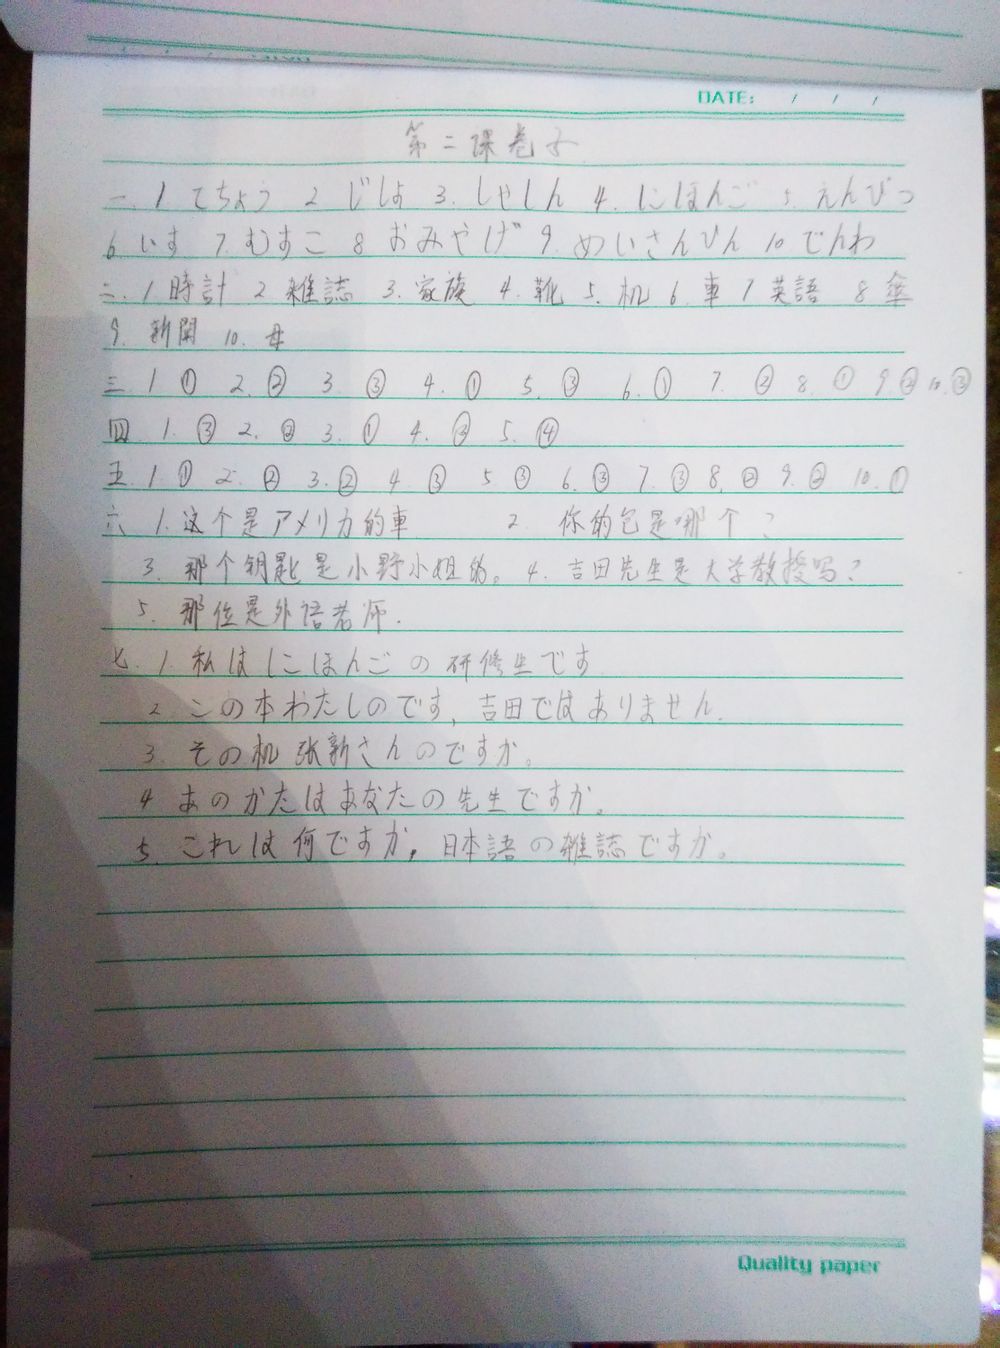 DATE: / / /
第二课卷子
一. 1 てちょう 2 じしょ 3. しゃしん 4. にほんご 5. えんぴつ
6 いす 7. むすこ 8 おみやげ 9. めいさんひん 10 でんわ
二. 1 時計 2 雑誌 3. 家族 4. 靴 5. 机 6. 車 7 英語 8 傘
9. 新聞 10. 母
三. 1 ① 2. ② 3. ③ 4. ① 5. ③ 6. ① 7. ② 8. ① 9 ② 10. ③
四. 1. ③ 2. ② 3. ① 4. ③ 5. ④
五. 1 ① 2. ② 3. ② 4 ③ 5 ③ 6. ③ 7. ③ 8. ② 9. ② 10. ①
六 1. 这个是アメリカ的車 2. 你的包是哪个?
3. 那个钥匙是小野小姐的。 4. 吉田先生是大学教授吗?
5. 那位是外语老师.
七. 1. 私はにほんごの研修生です
2. この本わたしのです, 吉田ではありません.
3. その机 张新さんのですか。
4 あのかたはあなたの先生ですか。
5. これは何ですか, 日本語の雑誌ですか。
Quality paper